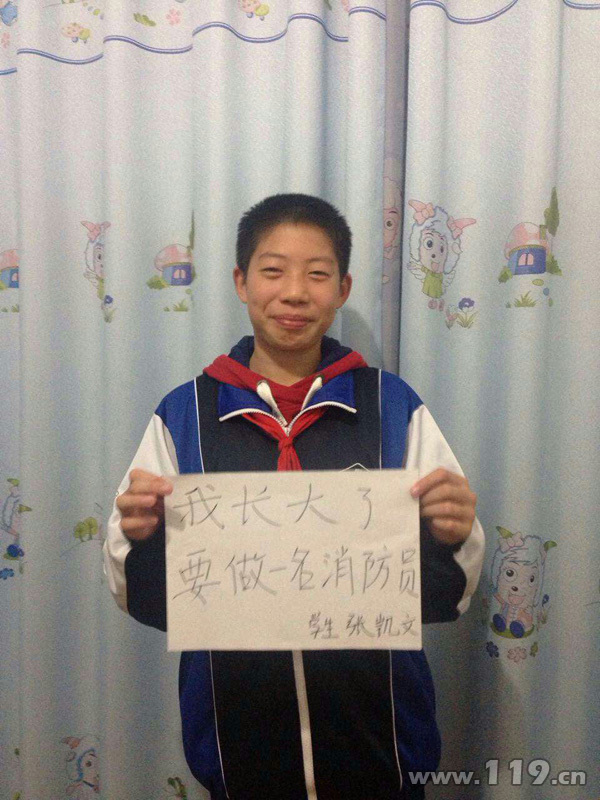 我长大了
要做一名消防员
学生 张凯文
www.119.cn